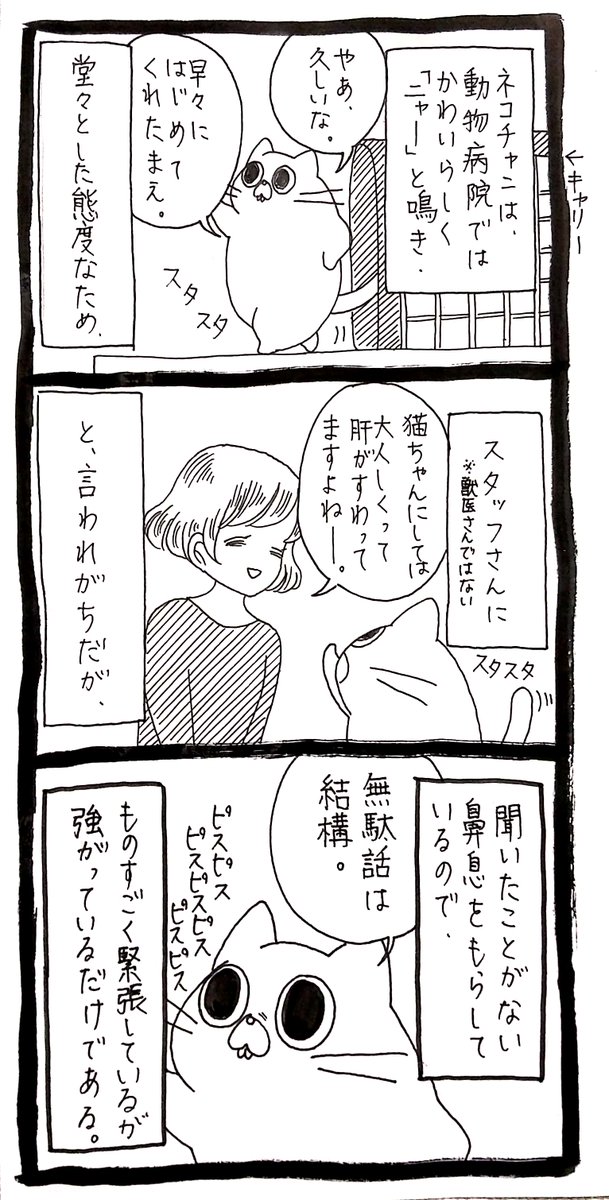 ネコチャンは、
動物病院では
かわいらしく
「ニャー」と鳴き、
←キャリー
やあ、
久しいな。
早々に
はじめて
くれたまえ。
スタ
スタ
堂々とした態度なため、
スタッフさんに
※獣医さんではない
猫ちゃんにしては
大人しくって
肝がすわって
ますよねー。
スタスタ
と、言われがちだが、
聞いたことがない
鼻息をもらして
いるので、
無駄話は
結構。
ピスピス
ピスピスピス
ピスピス
ものすごく緊張しているが
強がっているだけである。